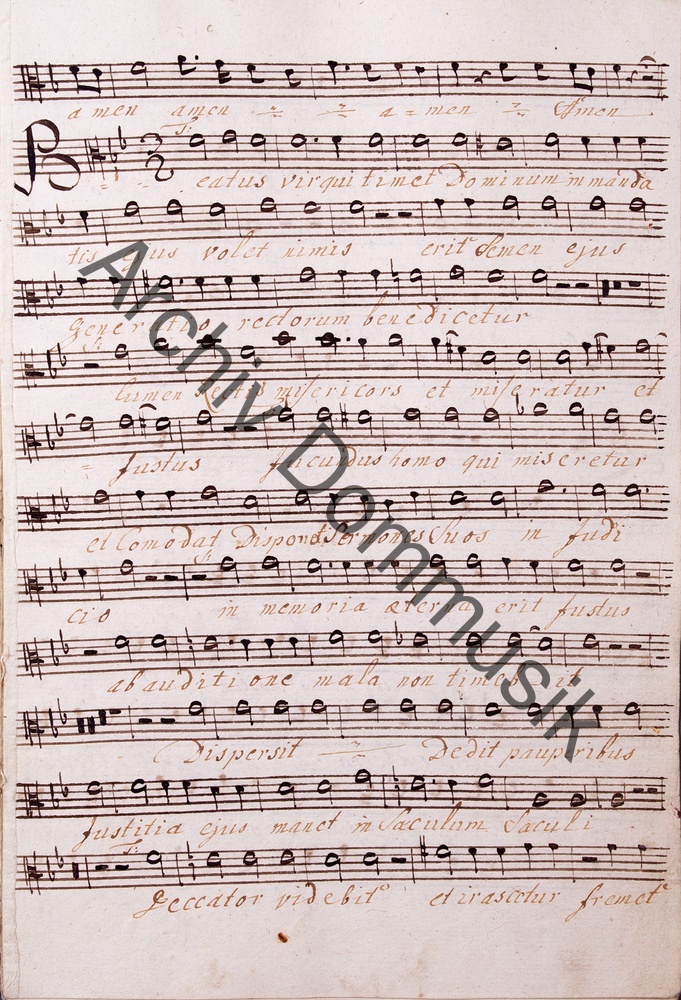 a men amen a = men Amen
Beatus vir qui timet Dominum in manda
tis ejus volet nimis erit Semen ejus
generatio rectorum benedicetur
lumen Rectis misericors et miseratur et
Justus Jucundus homo qui miseretur
et Comodat Disponet Sermones Suos in Judi
cio in memoria æterna erit Justus
ab auditione mala non timebit
Dispersit Dedit pauperibus
Justitia ejus manet in Sæculum Sæculi
Peccator videbit et irascetur fremet
Archiv Dommusik